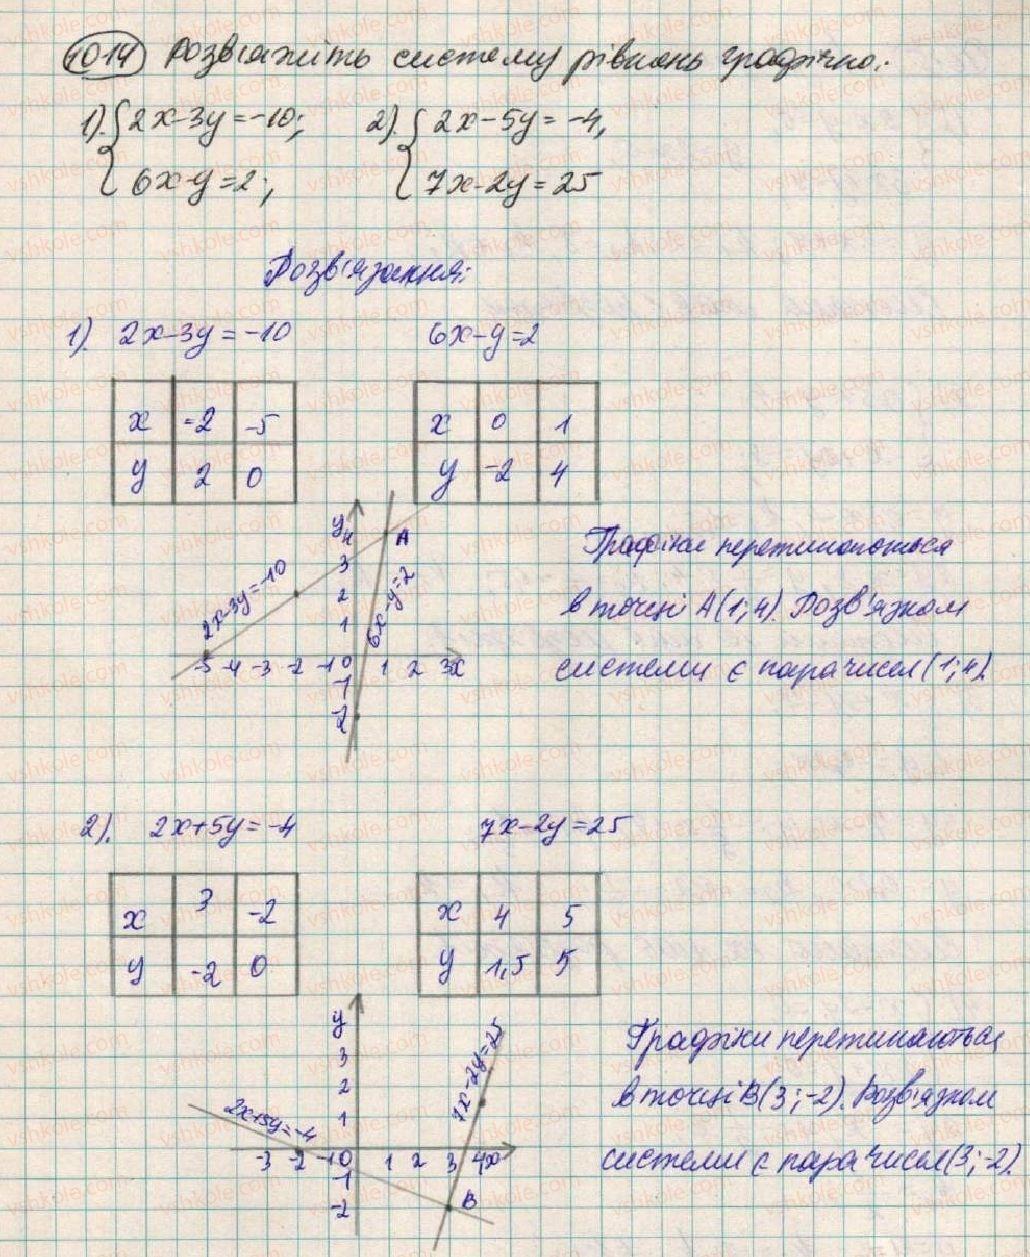 1014 Розв'яжіть систему рівнянь графічно:
1). { 2x-3y=-10; 2). { 2x-5y=-4,
6x-y=2; 7x-2y=25
Розв'язання:
1). 2x-3y=-10 6x-y=2
x -2 -5 x 0 1
y 2 0 y -2 4
y 4 A
3
2
1
-5 -4 -3 -2 -1 0 1 2 3 x
-1
-2
2x-3y=-10
6x-y=2
Графіки перетинаються
в точці A(1;4). Розв'язком
системи є пара чисел (1;4)
2). 2x+5y=-4 7x-2y=25
x 3 -2 x 4 5
y -2 0 y 1,5 5
y
3
2
1
-3 -2 -1 0 1 2 3 4 x
-1
-2 B
2x+5y=-4
7x-2y=25
Графіки перетинаються
в точці B(3;-2). Розв'язком
системи є пара чисел (3;-2).
vshkole.com